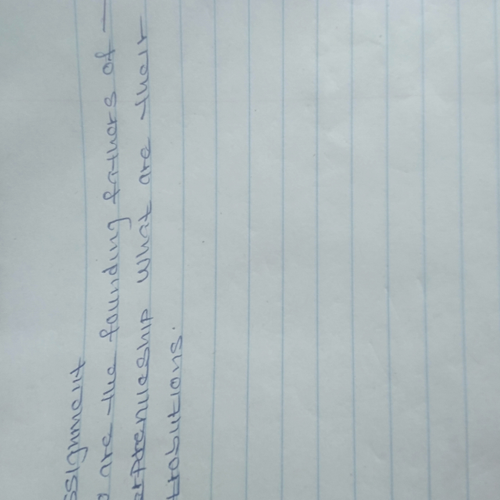 ssignment
are the founding fathers of -
erprenueship What are their
trobutions.